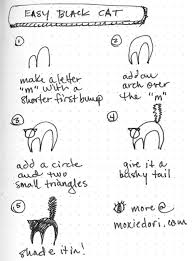 EASY BLACK CAT
①
make a letter
"m" with a
shorter first bump
②
add an
arch over
the "m"
③
add a circle
and two
small triangles
④
give it a
bushy tail
⑤
shade it in!
more @
moxiedori.com